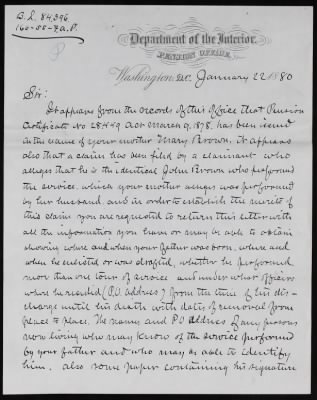 B.L. 84,396
160-55-7a.P.
Department of the Interior,
PENSION OFFICE,
Washington, D.C. January 22 1880
Sir:
It appears from the records of this office that Pension
Certificate No 28449 Act March 9, 1878, has been issued
in the name of your mother Mary Brown. It appears
also that a claim has been filed by a claimant who
alleges that he is the identical John Brown who performed
the service, which your mother alleges was performed
by her husband and in order to establish the merits of
this claim you are requested to return this letter with
all the information you have or may be able to obtain
showing when and where your father was born, where and
when he enlisted or was drafted, whether he performed
more than one tour of service and under what officers
where he resided (P.O. address) from the time of his dis-
charge until his death with dates of removal from
place to place. The names and PO address of any persons
now living who may know of the service performed
by your father and who may be able to identify
him, also some paper containing his signature